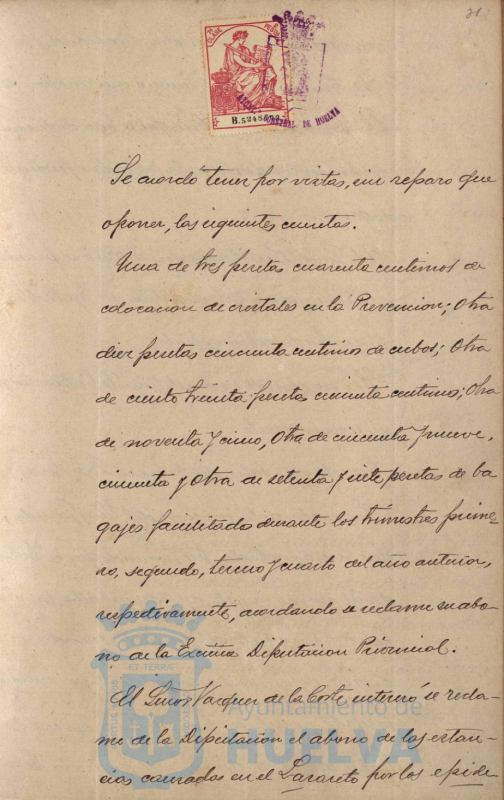 21.
B.5248523
CENTRAL DE HUELVA
Se acordó tener por vistas, sin reparo que
oponer, las siguientes cuentas.
Una de tres pesetas cuarenta centimos de
colocacion de cristales en la Prevencion; Otra
diez pesetas cincuenta centimos de cubos; Otra
de ciento treinta pesetas cincuenta centimos; Otra
de noventa y cinco, Otra de cincuenta y nueve,
cincuenta y Otra de setenta y siete pesetas de ba
gajes facilitado durante los trimestres prime-
ro, segundo, tercero y cuarto del año anterior,
respectivamente, acordando se reclame su abo-
no de la Excma Diputacion Provincial.
El Señor Vazquez de la Corte interesó se recla-
me de la Diputación el abono de las estan-
cias causadas en el Lazareto por los epide-
ET TERRÆ
Ayuntamiento de
HUELVA